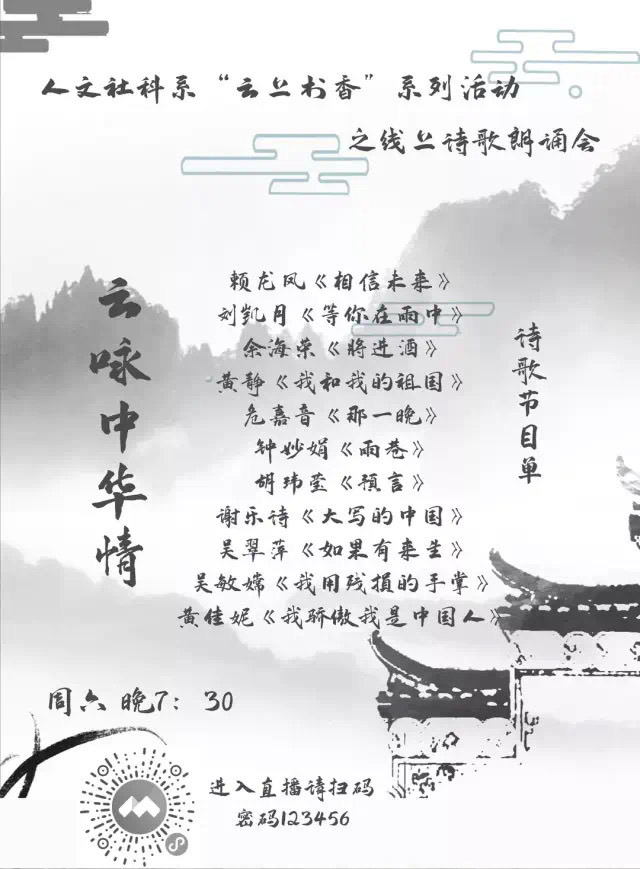 人文社科系“云上书香”系列活动
之线上诗歌朗诵会
云咏中华情
诗歌节目单
赖龙凤《相信未来》
刘凯月《等你在雨中》
余海荣《將进酒》
黄静《我和我的祖国》
危嘉音《那一晚》
钟妙娟《雨巷》
胡玮莹《預言》
谢乐诗《大写的中国》
吴翠萍《如果有来生》
吴敏嫦《我用残損的手掌》
黄佳妮《我骄傲我是中国人》
周六 晚7：30
进入直播请扫码
密码123456